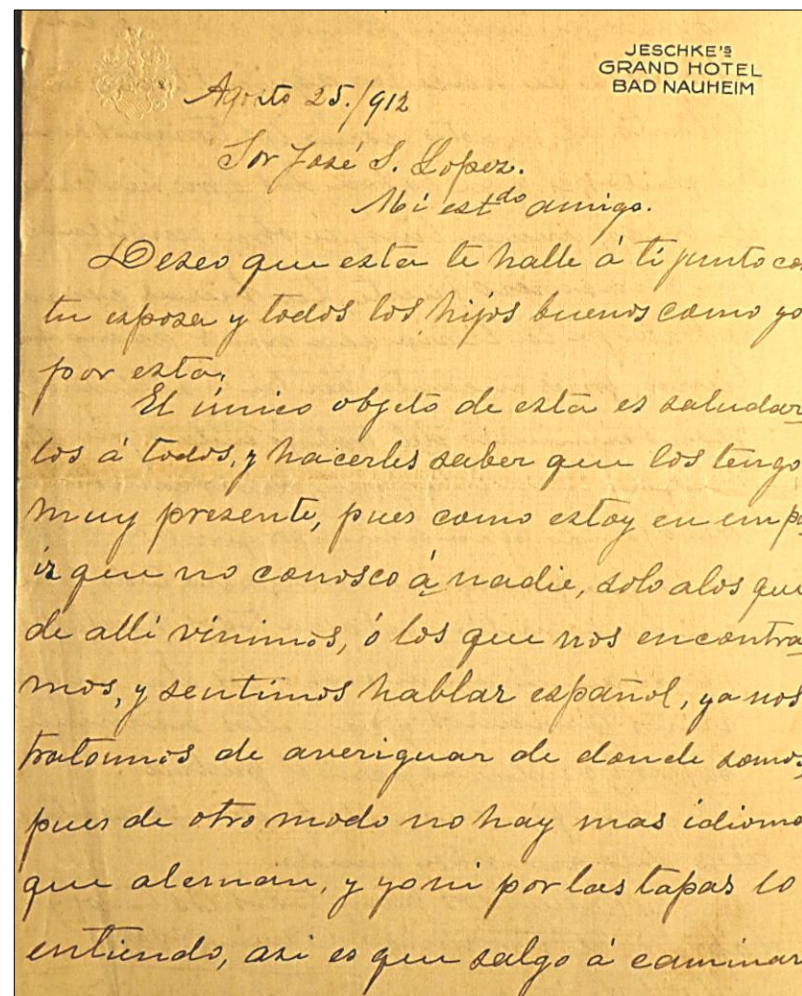 JESCHKE'S
GRAND HOTEL
BAD NAUHEIM
Agosto 25./912
Sor José S. Lopez.
Mi est.do amigo.
Deseo que esta te halle á ti junto con
tu esposa y todos los hijos buenos como yo
por esta,
El único objeto de esta es saludar
los á todos, y hacerles saber que los tengo
muy presente, pues como estoy en un pa
is que no conosco á nadie, solo alos que
de allí vinimos, ó los que nos encontra
mos, y sentimos hablar español, ya nos
tratamos de averiguar de donde somos,
pues de otro modo no hay mas idioma
que aleman, y yo ni por las tapas lo
entiendo, asi es que salgo á caminar